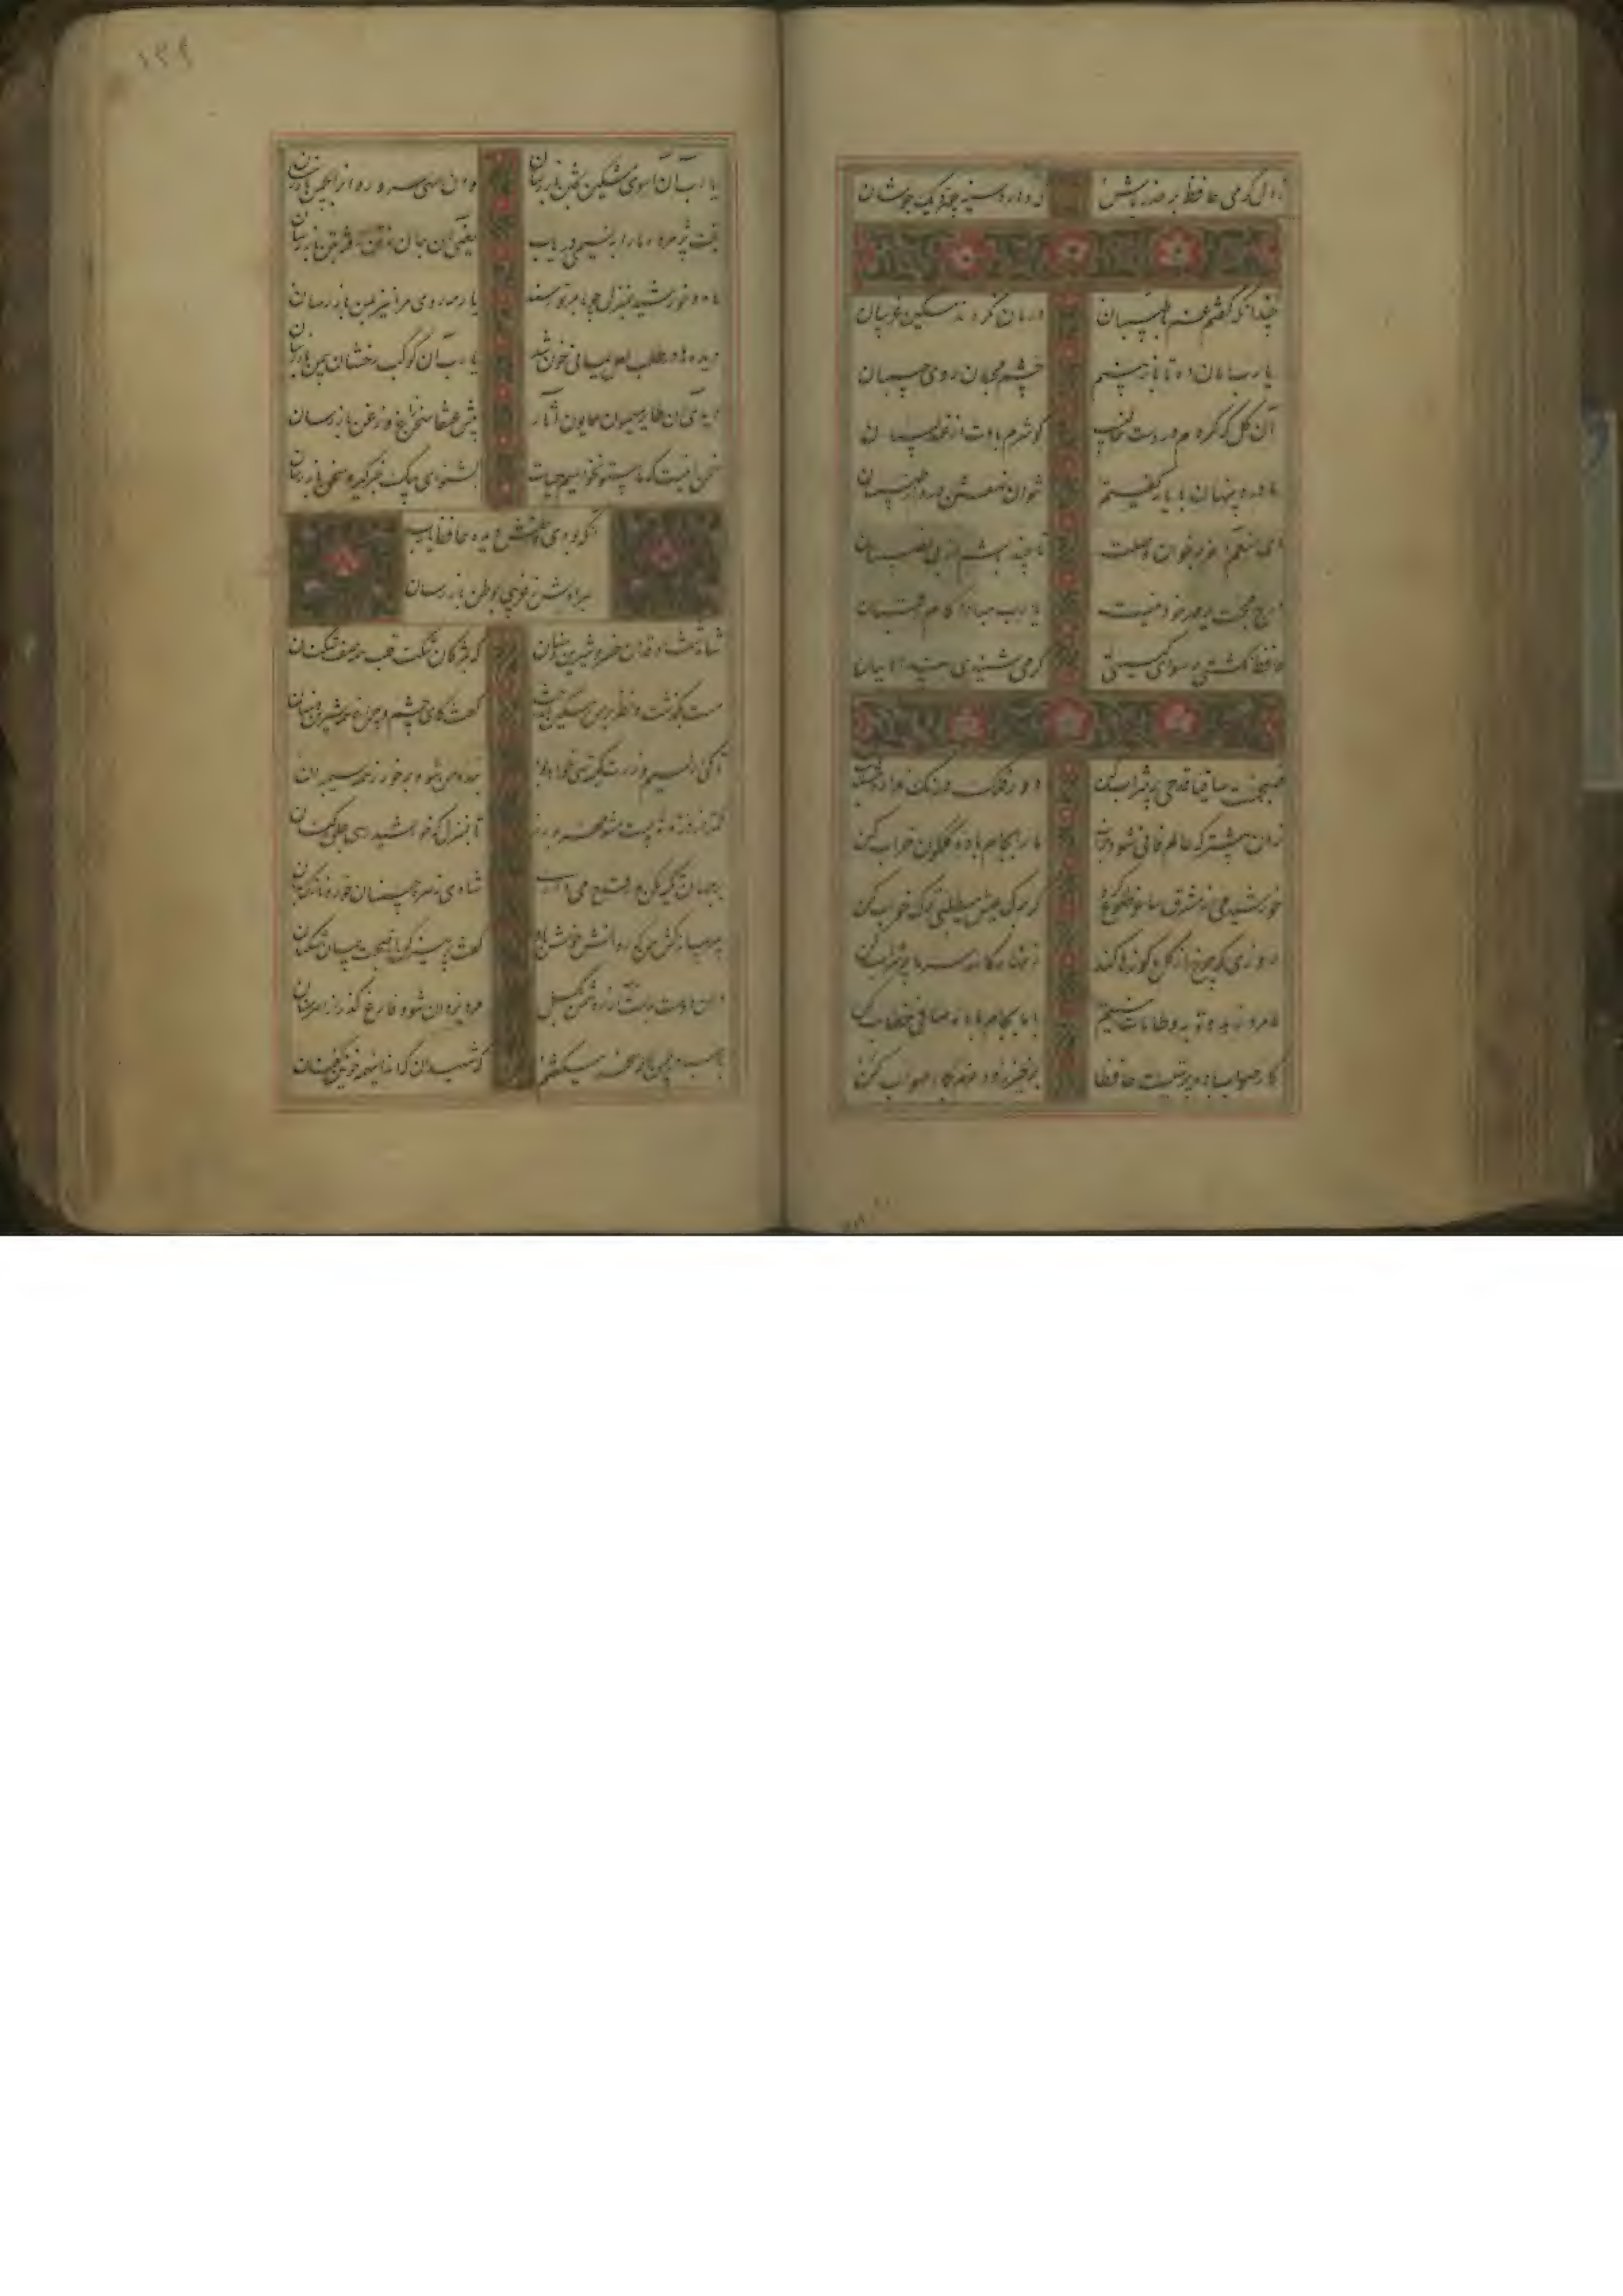 ز دل گرمی حافظ بر حذر باش
که دارد سینه چون دیک جوشان
چندانکه گفتم غم با طبیبان
درمان نکردند مسکین غریبان
یا رب امان ده تا باز بینم
چشم محبان روی حبیبان
آن گل که هر دم در دست
گو شرم بادت از عندلیبان
ما درد پنهان با یار گفتیم
نتوان نهفتن درد از طبیبان
ای منعم آخر بر خوان وصلت
تا چند باشیم از بی نصیبان
درج محبت بر مهر خود نیست
یا رب مبادا کام رقیبان
حافظ نگشتی رسوای گیتی
گر می شنیدی پند ادیبان
صبحست ساقیا قدحی پر شراب کن
دور فلک درنگ ندارد شتاب کن
زان پیشتر که عالم فانی شود خراب
ما را بجام باده گلگون خراب کن
خورشید می ز مشرق ساغر طلوع کرد
گر برگ عیش میطلبی ترک خواب کن
روزی که چرخ از گل ما کوزها کند
زنهار کاسه سر ما پر شراب کن
ما مرد زهد و توبه و طامات نیستیم
با ما بجام باده صافی خطاب کن
کار صواب باده پرستیست حافظا
برخیز و عزم کار صواب کن
۱۳۹
یا رب آن آهوی مشکین بختن باز رسان
وان سهی سرو روان را بچمن باز رسان
بخت پژمرده ما را بنسیمی دریاب
یعنی آن جان ز تن رفته بتن باز رسان
ماه و خورشید بمنزل چو بامر تو رسند
یار مه روی مرا نیز بمن باز رسان
دیده ها در طلب لعل یمانی خون شد
یا رب آن کوکب رخشان بیمن باز رسان
برو ای طایر میمون همایون آثار
پیش عنقا سخن زاغ و زغن باز رسان
سخن اینست که ما بیتو نخواهیم حیات
بشنو ای پیک خبرگیر و سخن باز رسان
آنکه بودی وطنش دیده حافظ یا رب
بمرادش ز غریبی بوطن باز رسان
شاه شمشاد قدان خسرو شیرین دهنان
که بمژگان شکند قلب همه صف شکنان
مست بگذشت و نظر بر من درویش انداخت
گفت کای چشم و چراغ همه شیرین دهنان
تا کی از سیم و زرت کیسه تهی خواهد بود
بنده من شو و برخور ز همه سیمبران
کمتر از ذره نه پست مشو مهر بورز
تا بمنزل گه خورشید رسی
بر جهان تکیه مکن ور قدح می داری
شادی زهره جبینان خور و نازک بدنان
پیر پیمانه کش من که روانش خوش باد
گفت پرهیز کن از صحبت پیمان شکنان
دامن دوست بدست آر و ز دشمن بگسل
مرد یزدان شو و فارغ گذر از اهرمنان
با صبا در چمن لاله سحر میگفتم
که شهیدان که اند اینهمه خونین کفنان